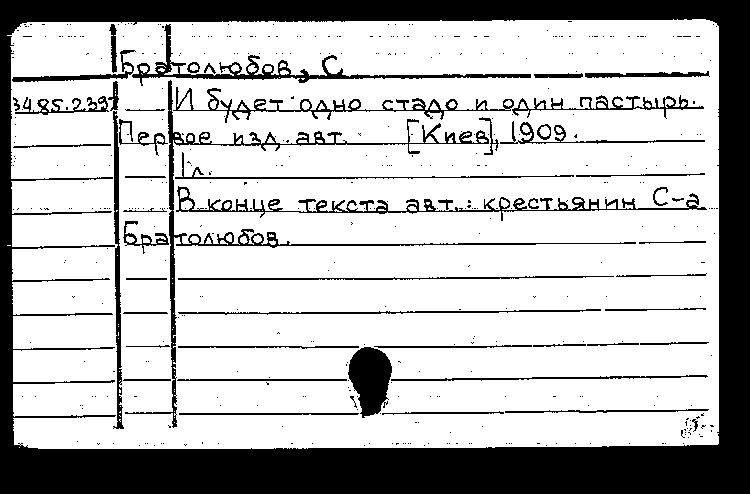 Братолюбов, С
34.85.2.397 И будет одно стадо и один пастырь.
Первое изд. авт. [Киев], 1909.
1 л.
В конце текста авт.: крестьянин С-а
Братолюбов.